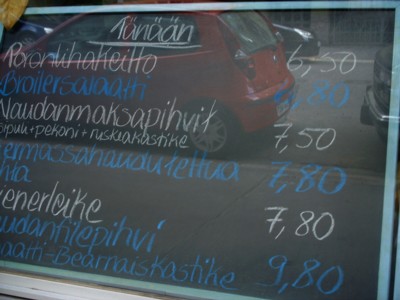 Tänään
Poronlihakeitto 6,50
Broilersalaatti 6,80
Naudanmaksapihvit
sipuli+pekoni+ruskeakastike 7,50
ermassahaudutettua 7,80
hta
ienerleike 7,80
audanfilepihvi
aatti-Bearnaiskastike 9,80